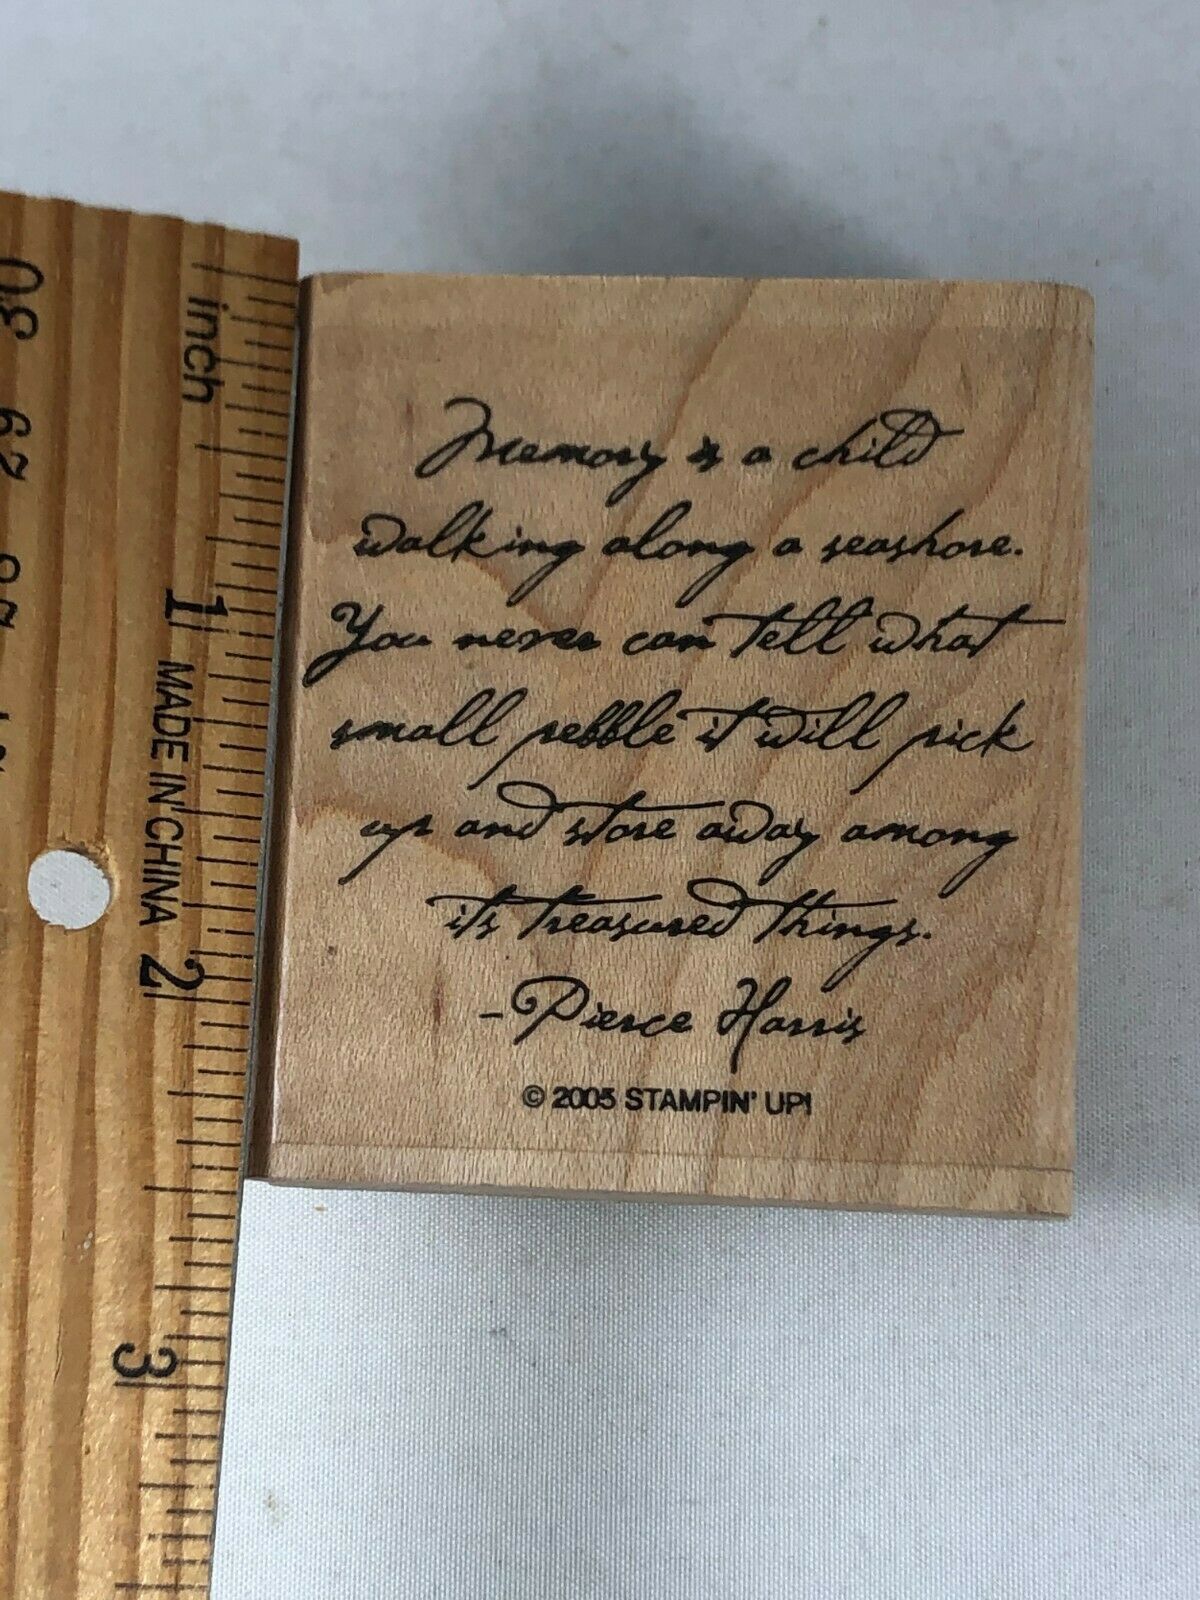 Memory is a child
walking along a seashore.
You never can tell what
small pebble it will pick
up and store away among
its treasured things.
-Pierce Harris
© 2005 STAMPIN' UP!
inch
1
MADE IN CHINA
2
3
30
29